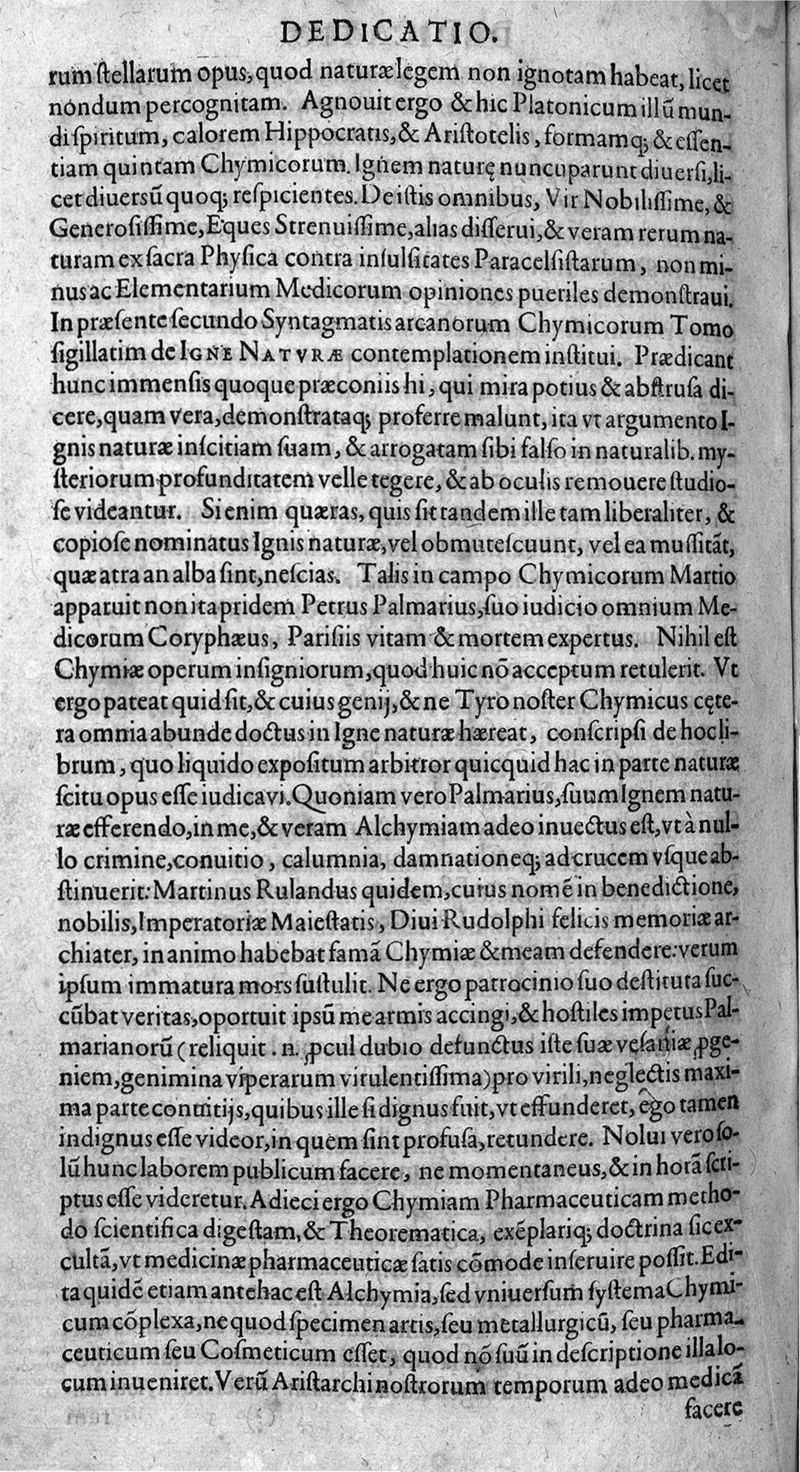 DEDICATIO.
rum ſtellarum opus, quod naturæ legem non ignotam habeat, licet
nondum percognitam. Agnouit ergo & hic Platonicum illũ mun-
di ſpiritum, calorem Hippocratis, & Ariſtotelis, formamq́; & eſſen-
tiam quintam Chymicorum. Ignem naturę nuncuparunt diuerſi, li-
cet diuersũ quoq; reſpicientes. De iſtis omnibus, Vir Nobiliſſime, &
Generoſiſſime, Eques Strenuiſſime, alias diſſerui, & veram rerum na-
turam ex ſacra Phyſica contra inſulſitates Paracelſiſtarum, non mi-
nus ac Elementarium Medicorum opiniones pueriles demonſtraui.
In præſente ſecundo Syntagmatis arcanorum Chymicorum Tomo
ſigillatim de IGNE NATVRÆ contemplationem inſtitui. Prædicant
hunc immenſis quoque præconiis hi, qui mira potius & abſtruſa di-
cere, quam vera, demonſtrataq; proferre malunt, ita vt argumento I-
gnis naturæ inſcitiam ſuam, & arrogatam ſibi falſo in naturalib. my-
ſteriorum profunditatem velle tegere, & ab oculis remouere ſtudio-
ſe videantur. Si enim quæras, quis ſit tandem ille tam liberaliter, &
copioſe nominatus Ignis naturæ, vel obmuteſcuunt, vel ea muſſitãt,
quæ atra an alba ſint, neſcias. Talis in campo Chymicorum Martio
apparuit non ita pridem Petrus Palmarius, ſuo iudicio omnium Me-
dicorum Coryphæus, Pariſiis vitam & mortem expertus. Nihil eſt
Chymiæ operum inſigniorum, quod huic nõ acceptum retulerit. Vt
ergo pateat quid ſit, & cuius genij, & ne Tyro noſter Chymicus cęte-
ra omnia abunde doctus in Igne naturæ hæreat, conſcripſi de hoc li-
brum, quo liquido expoſitum arbitror quicquid hac in parte naturæ
ſcitu opus eſſe iudicavi. Quoniam vero Palmarius, ſuum Ignem natu-
ræ efferendo, in me, & veram Alchymiam adeo inuectus eſt, vt à nul-
lo crimine, conuitio, calumnia, damnationeq; ad crucem vſque ab-
ſtinuerit: Martinus Rulandus quidem, cuius nomẽ in benedictione,
nobilis, Imperatoriæ Maieſtatis, Diui Rudolphi felicis memoriæ ar-
chiater, in animo habebat famã Chymiæ & meam defendere: verum
ipſum immatura mors ſuſtulit. Ne ergo patrocinio ſuo deſtituta ſuc-
cũbat veritas, oportuit ipsũ me armis accingi, & hoſtiles impetus Pal-
marianorũ (reliquit . n. ꝓcul dubio defunctus iſte ſuæ veſaniæ ꝓge-
niem, genimina viperarum virulentiſſima) pro virili, neglectis maxi-
ma parte conuitijs, quibus ille ſi dignus fuit, vt effunderet, ego tamen
indignus eſſe videor, in quem ſint profuſa, retundere. Nolui vero ſo-
lũ hunc laborem publicum facere, ne momentaneus, & in horã ſcri-
ptus eſſe videretur. Adieci ergo Chymiam Pharmaceuticam metho-
do ſcientifica digeſtam, & Theorematica, exẽplariq; doctrina ſic ex-
cultã, vt medicinæ pharmaceuticæ ſatis cõmode inſeruire poſſit. Edi-
ta quidẽ etiam antehac eſt Alchymia, ſed vniuerſum ſyſtema Chymi-
cum cõplexa, ne quod ſpecimen artis, ſeu metallurgicũ, ſeu pharma-
ceuticum ſeu Coſmeticum eſſet, quod nõ ſuũ in deſcriptione illa lo-
cum inueniret. Verũ Ariſtarchi noſtrorum temporum adeo medicã
facere